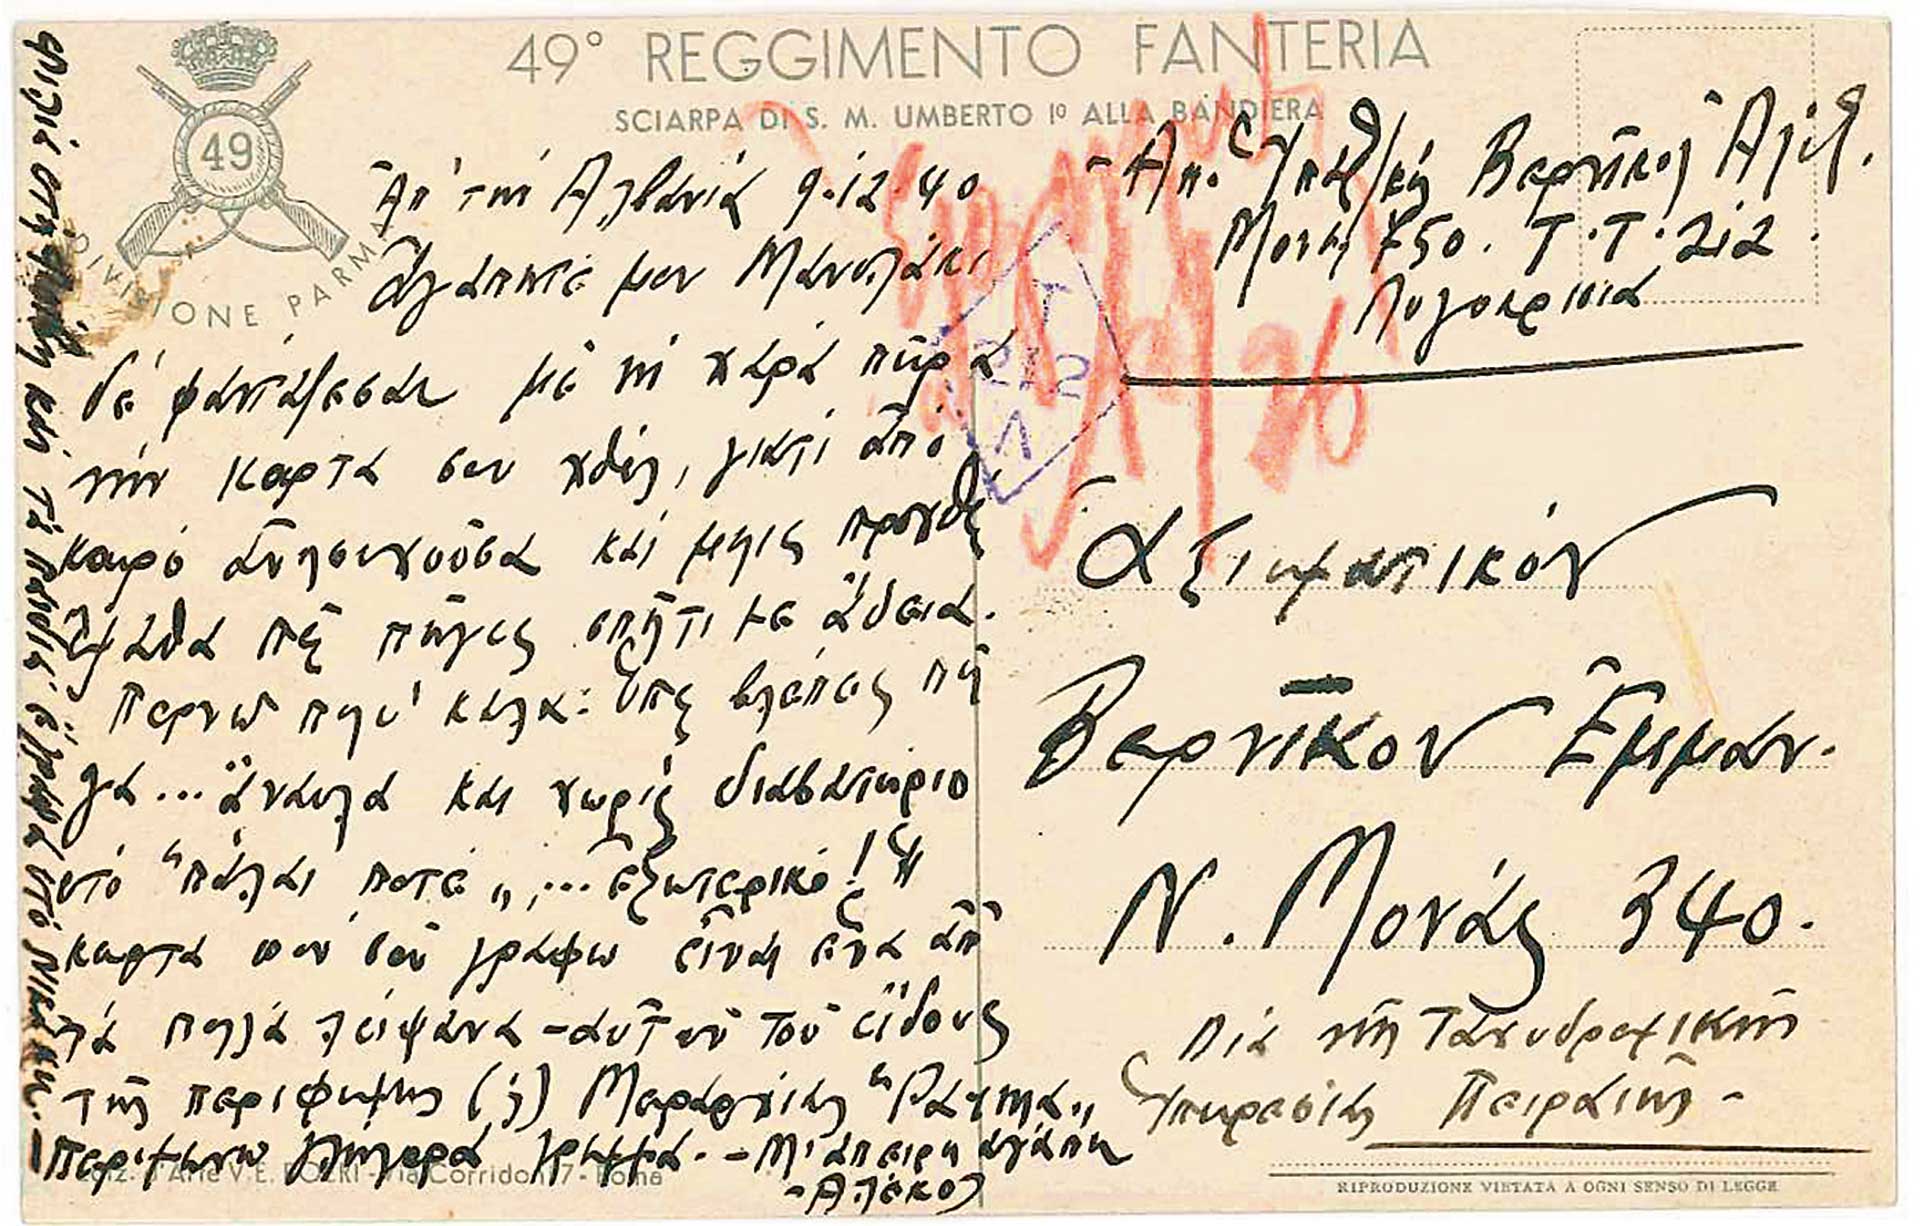 49° REGGIMENTO FANTERIA
SCIARPA DI S. M. UMBERTO Iº ALLA BANDIERA
49
DIVISIONE PARMA
Ἀπ' τὴν Ἀλβανία 9.12.40
Ἀγαπητέ μου Μανωλάκι
δὲ φαντάζεσαι μὲ τὴ χαρὰ πῆρα
τὴν κάρτα σου χθές, γιατὶ ἀπὸ
καιρὸ ἀνησυχοῦσα καὶ μόλις προχθὲς
ἔμαθα πῶς πῆγες σπῆτι με ἄδεια.
Περνῶ πολὺ καλά. Ὅπως βλέπεις πῆ
γα ... ἄναυλα και χωρὶς διαβατήριο
στὸ "πάλαι ποτέ", ... ἐξωτερικό! Ἡ
κάρτα ποὺ σοῦ γράφω εἶναι ἕνα ἀπ'
τὰ πολλὰ λείψανα - αὐτοῦ τοῦ εἴδους
τῆς περιφήμης (;) Μεραρχίας "Πάρμα"
Περιμένω γλήγορα γράμμα. - Μ' ἄπειρη ἀγάπη
- Ἀλέκος
φιλιὰ στὴ καὶ τὰ παιδιά. ἔγραψα στὸ
Ἀπ. Ὑπαξ/κὴ Βερνῖκος Ἀλέξ.
Μονὰς 750. Τ.Τ. 212.
Λογοκρισία
Τ
212
Λ
26
Ἀξιωματικόν
Βερνῖκον Ἐμμαν.
Ν. Μονάς 340.
Διὰ τῆς Ταχυδρομικῆς
Ὑπηρεσίας Πειραιῶς -
V. E. BOERI - Via Corridoni 7 - Roma
RIPRODUZIONE VIETATA A OGNI SENSO DI LEGGE